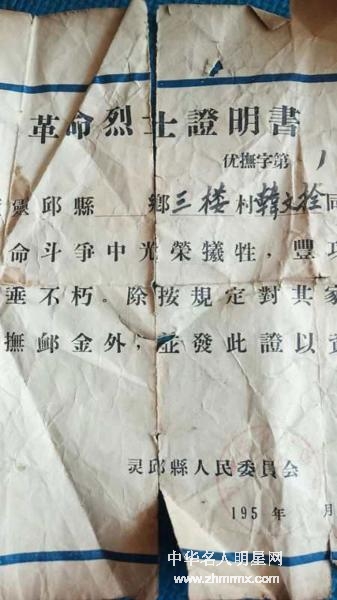 革命烈士證明書
优撫字第
靈邱縣 鄉三楼村韓文拴同
命斗爭中光榮犧牲，豐功
垂不朽。除按規定對其家
撫卹金外，並發此證以資
灵邱縣人民委員会
195 年 月
中华名人明星网
www.zhmmmx.com